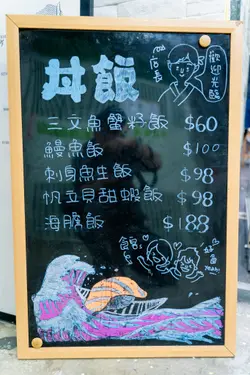 丼飯
店長
歡迎光臨
三文魚蟹籽飯 $60
鰻魚飯 $100
刺身魚生飯 $98
帆立貝甜蝦飯 $98
海膽飯 $188